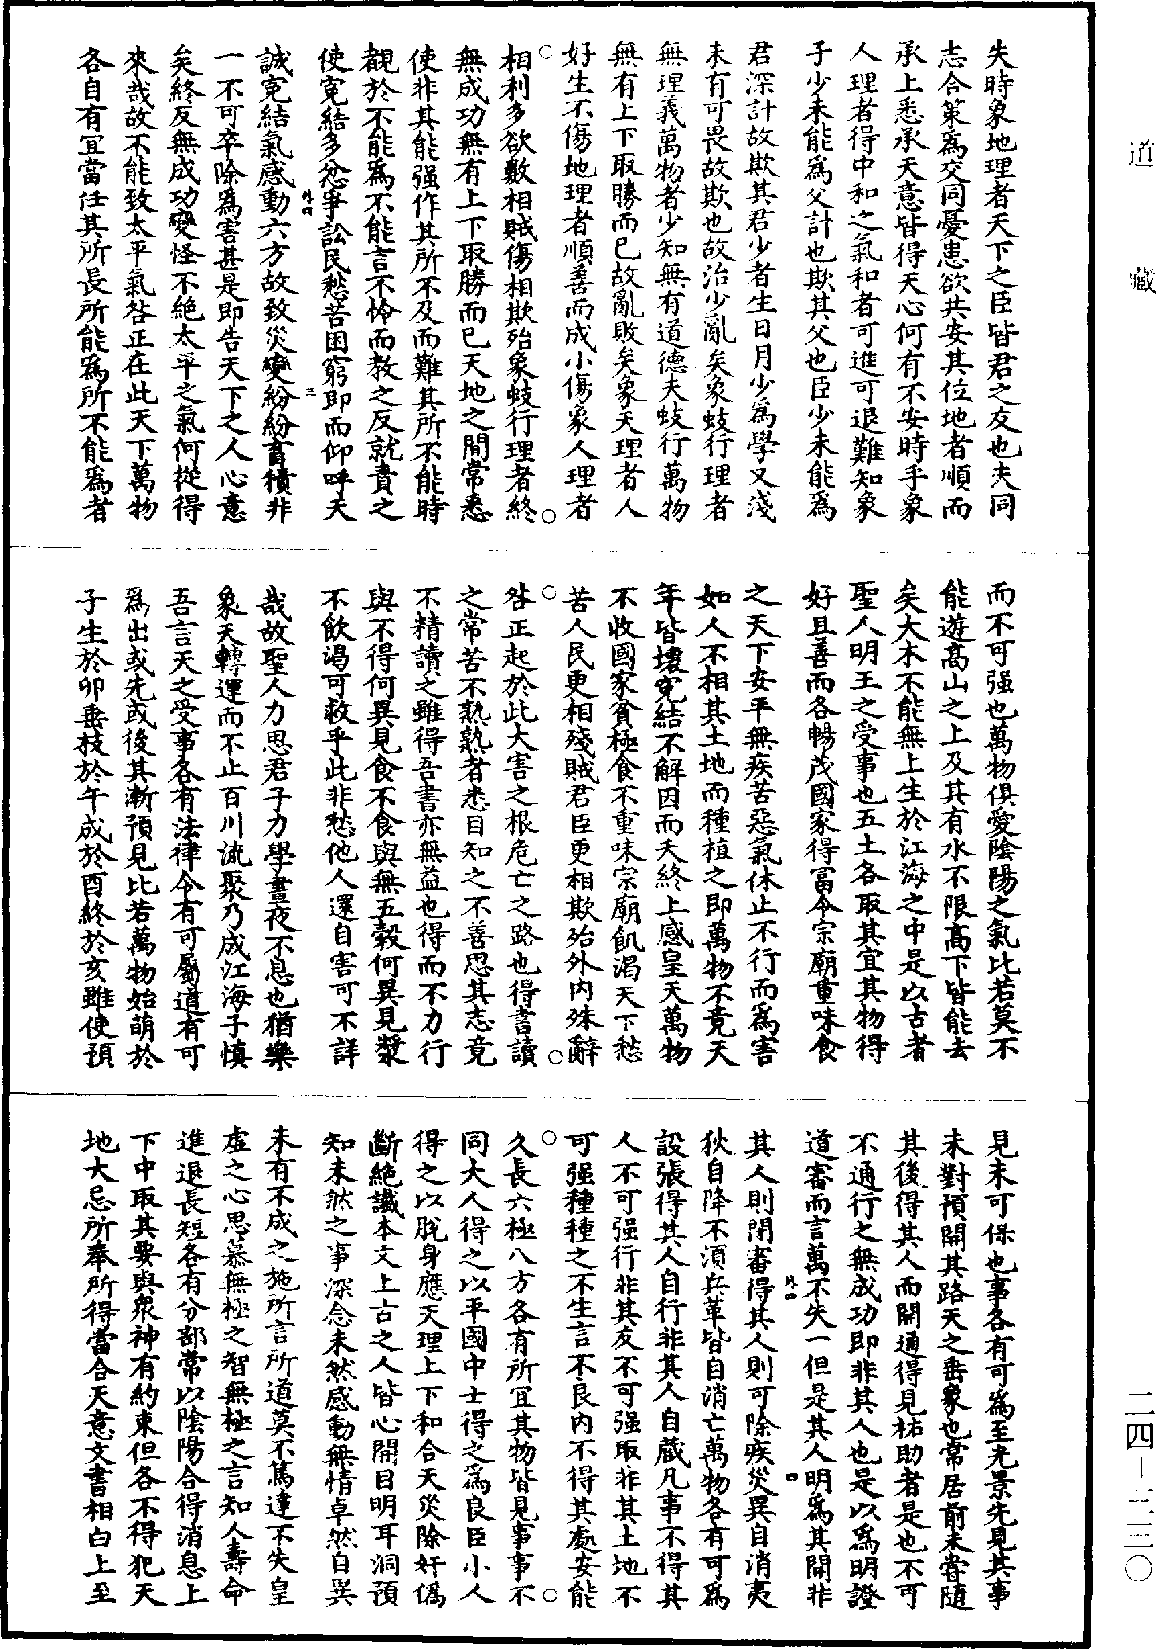 道藏
失時象地理者天下之臣皆君之友也夫同
志合策爲交同憂患欲共安其位地者順而
承上悉承天意皆得天心何有不安時乎象
人理者得中和之氣和者可進可退難知象
子少未能爲父計也欺其父也臣少未能爲
君深計故欺其君少者生日月少爲學又淺
未有可畏故欺也故治少亂矣象蚑行理者
無理義萬物者少知無有道德夫蚑行萬物
無有上下取勝而已故亂敗矣象天理者人
好生不傷地理者順善而成小傷象人理者
○相利多欲數相賊傷相欺殆象蚑行理者終○
無成功無有上下取勝而已天地之間常悉
使非其能强作其所不及而難其所不能時
覩於不能爲不能言不怜而教之反就責之
使寃結多忿爭訟民愁苦困窮即而仰呼天
誠寃結氣感動六方故致災變紛紛畜積非
一不可卒除爲害甚是即告天下之人心意
矣終反無成功變怪不絕太平之氣何從得
來哉故不能致太平氣咎正在此天下萬物
各自有宜當任其所長所能爲所不能爲者
而不可强也萬物俱愛陰陽之氣比若莫不
能遊高山之上及其有水不限高下皆能去
矣大木不能無上生於江海之中是以古者
聖人明王之受事也五土各取其宜其物得
好且善而各暢茂國家得富令宗廟重味食
之天下安平無疾苦惡氣休止不行而爲害
如人不相其土地而種植之即萬物不竟天
年皆壞寃結不解因而夭終上感皇天萬物
不收國家貧極食不重味宗廟飢渴天下愁
苦人民更相殘賊君臣更相欺殆外内殊辭
○咎正起於此大害之根危亡之路也得書讀○
之常苦不熟熟者悉自知之不善思其志竟
不精讀之雖得吾書亦無益也得而不力行
與不得何異見食不食與無五穀何異見漿
不飲渴可救乎此非愁他人還自害可不詳
哉故聖人力思君子力學晝夜不息也猶樂
象天轉運而不止百川流聚乃成江海子慎
吾言天之受事各有法律令有可屬道有可
爲出或先或後其漸預見比若萬物始萌於
子生於卯垂枝於午成於酉終於亥雖使預
見未可保也事各有可爲至光景先見其事
未對預開其路天之垂象也常居前未嘗隨
其後得其人而開通得見祐助者是也不可
不通行之無成功即非其人也是以爲明證
道審而言萬不失一但是其人明爲其開非
其人則閉審得其人則可除疾災異自消夷
狄自降不須兵革皆自消亡萬物各有可爲
設張得其人自行非其人自藏凡事不得其
人不可强行非其友不可强取非其土地不
可强種種之不生言不良内不得其處安能
○久長六極八方各有所宜其物皆見事事不○
同大人得之以平國中士得之爲良臣小人
得之以脫身應天理上下和合天災除奸僞
斷絕讖本文上古之人皆心開目明耳洞預
知未然之事深念未然感動無情卓然自異
未有不成之施所言所道莫不篤達不失皇
虛之心思慕無極之智無極之言知人壽命
進退長短各有分部常以陰陽合得消息上
下中取其要與衆神有約束但各不得犯天
地大忌所奉所得當合天意文書相白上至
二四－二三〇